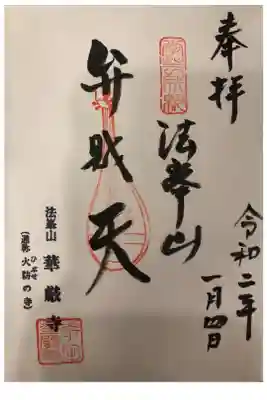 奉拝
令和二年
一月四日
法峯山
弁財天
法峯山 華厳寺
(通称 火防の寺)
ひぶせ